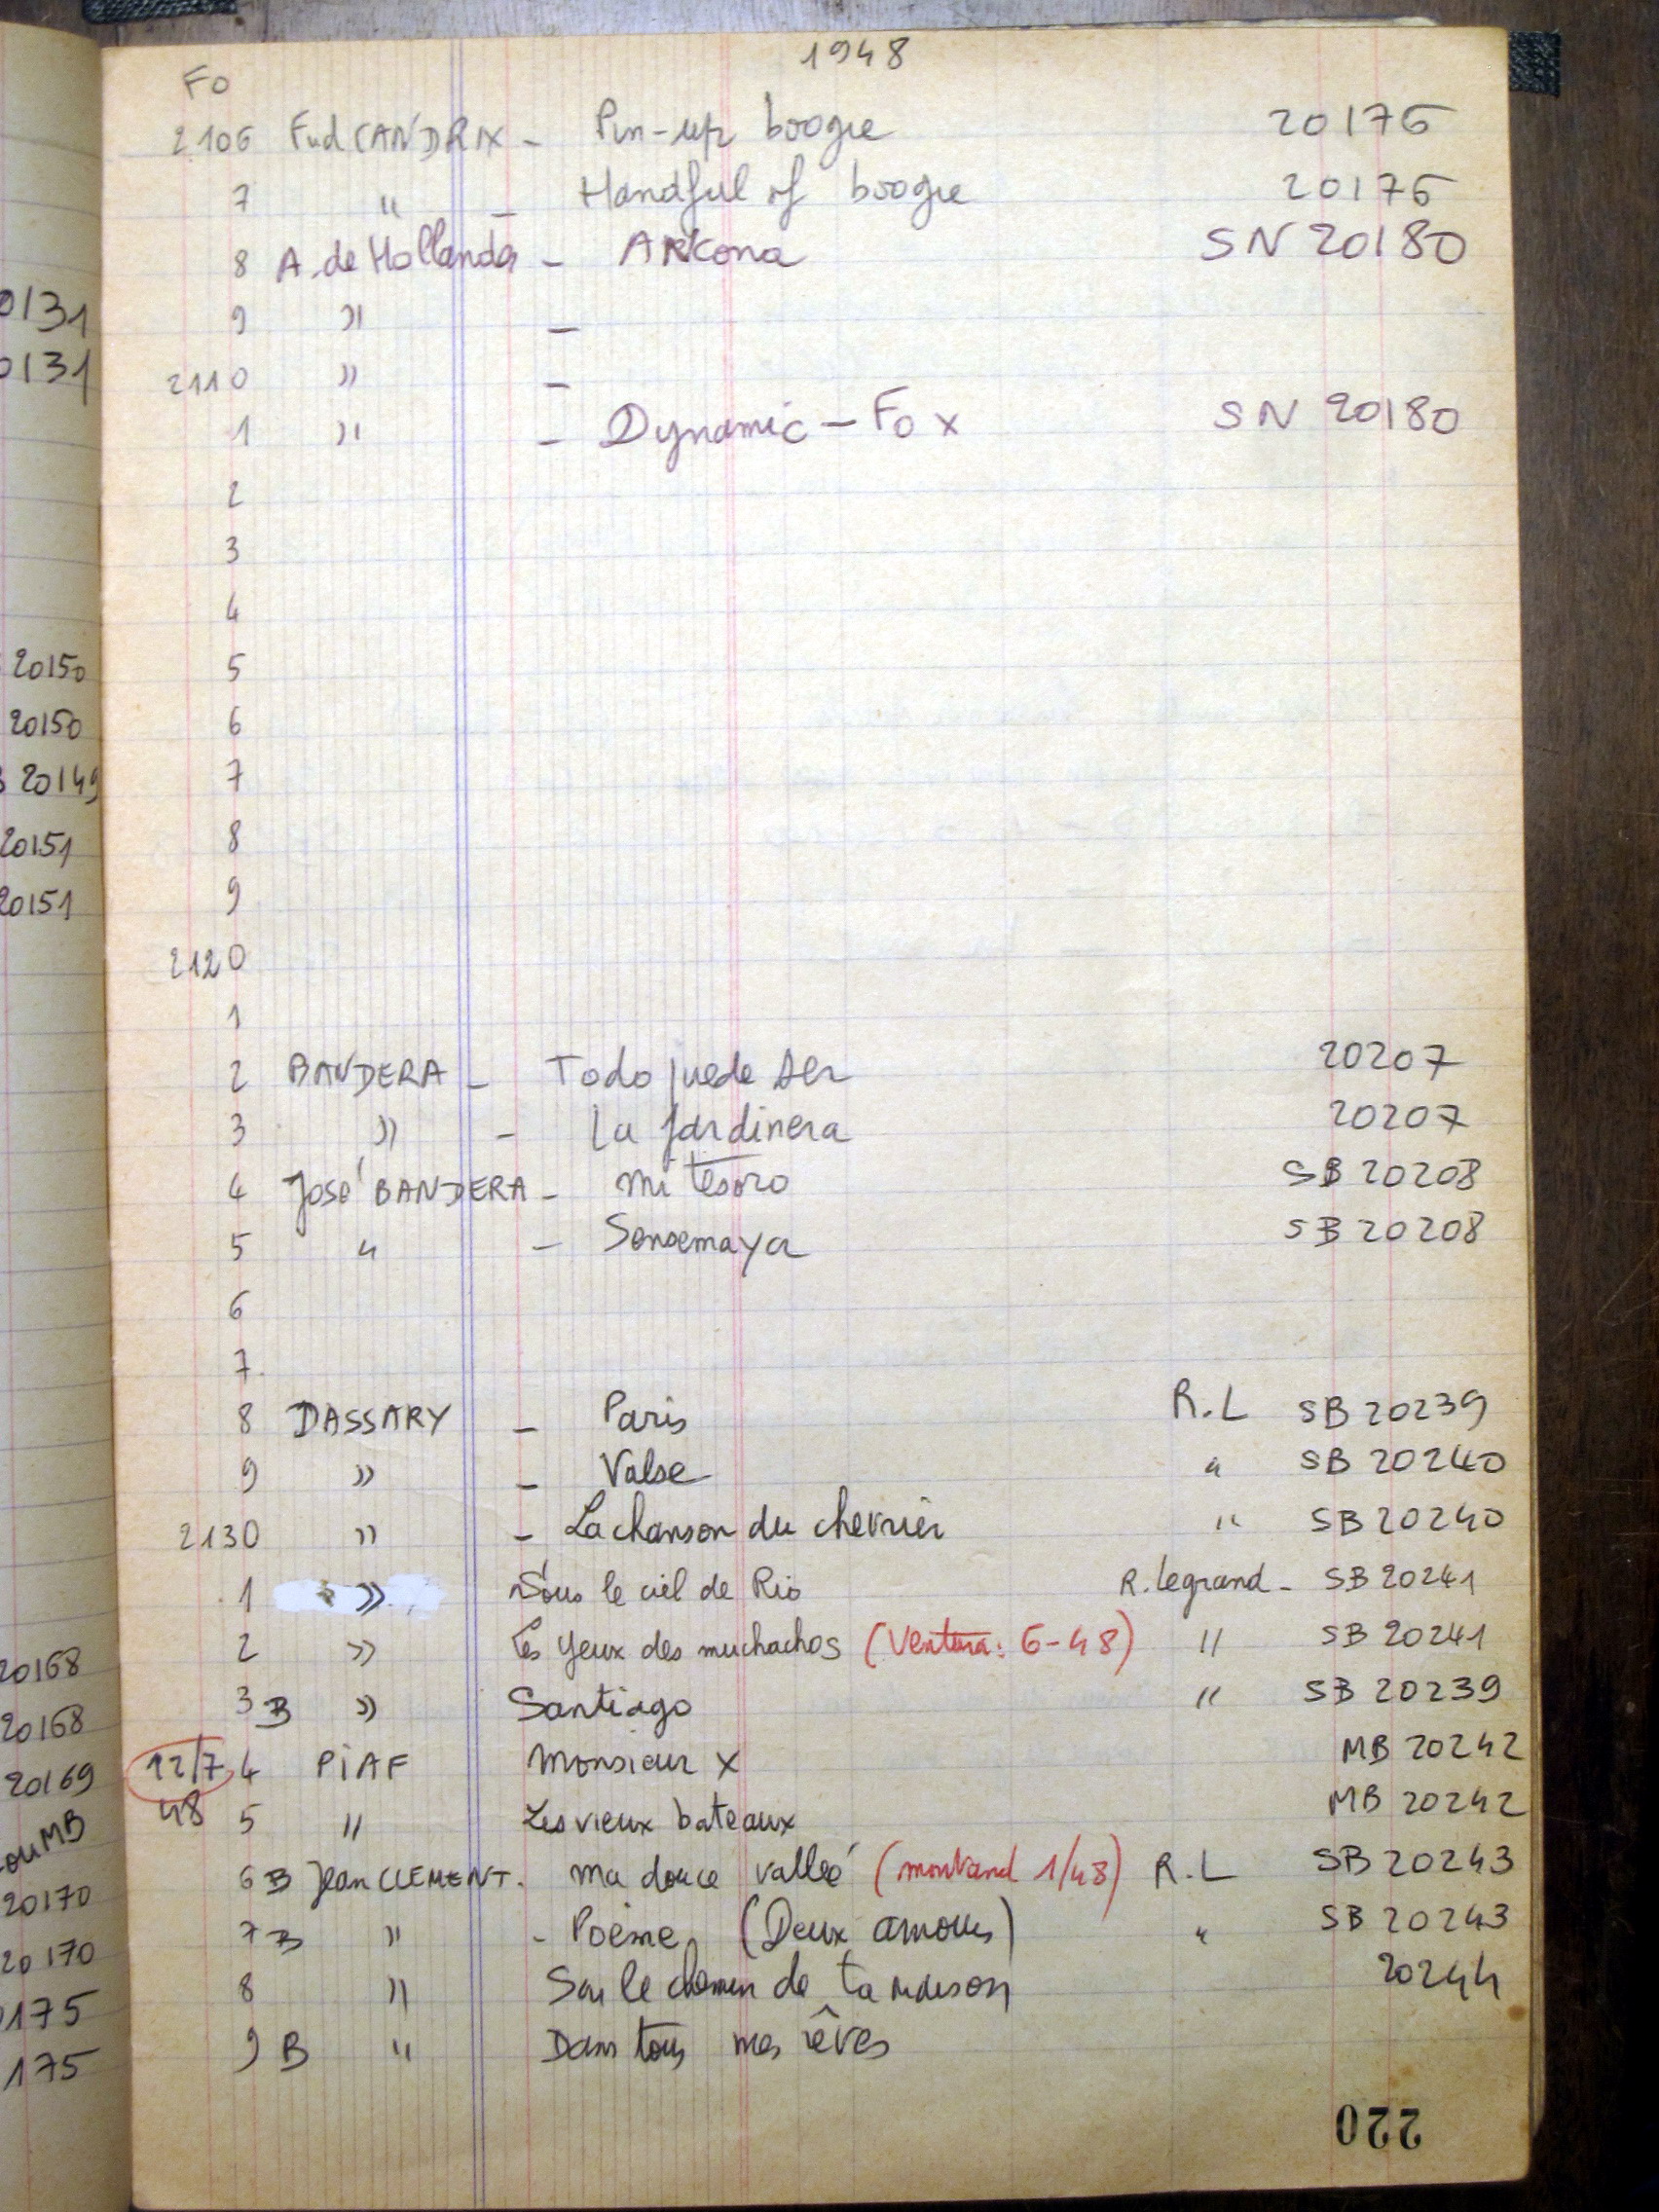 1948
Fo
2106 Fud CANDRIX - Pin-up boogie 20176
7 " - Handful of boogie 20176
8 A. de Hollanda - ARKona SN 20180
9 " -
2110 " -
1 " - Dynamic - Fox SN 20180
2
3
4
5
6
7
8
9
2120
1
2 BANDERA - Todo puede ser 20207
3 " - La Jardinera 20207
4 José BANDERA - mi tesoro SB 20208
5 " - Sensemaya SB 20208
6
7.
8 DASSARY - Paris R.L SB 20239
9 " - Valse " SB 20240
2130 " - La chanson du chevrier " SB 20240
1 " Sous le ciel de Rio R. Legrand - SB 20241
2 " Les yeux des muchachos (Ventura: 6-48) " SB 20241
3 B " Santiago " SB 20239
12/7 4 PiAF Monsieur X MB 20242
48 5 " Les vieux bateaux MB 20242
6 B Jean CLEMENT. Ma douce vallée (montand 1/48) R.L SB 20243
7 B " - Poème (Deux amours) " SB 20243
8 " Sur le chemin de ta maison 20244
9 B " Dans tous mes rêves
220
0131
0131
20150
20150
20149
20151
20151
20168
20168
20169
ou MB
20170
20170
175
175